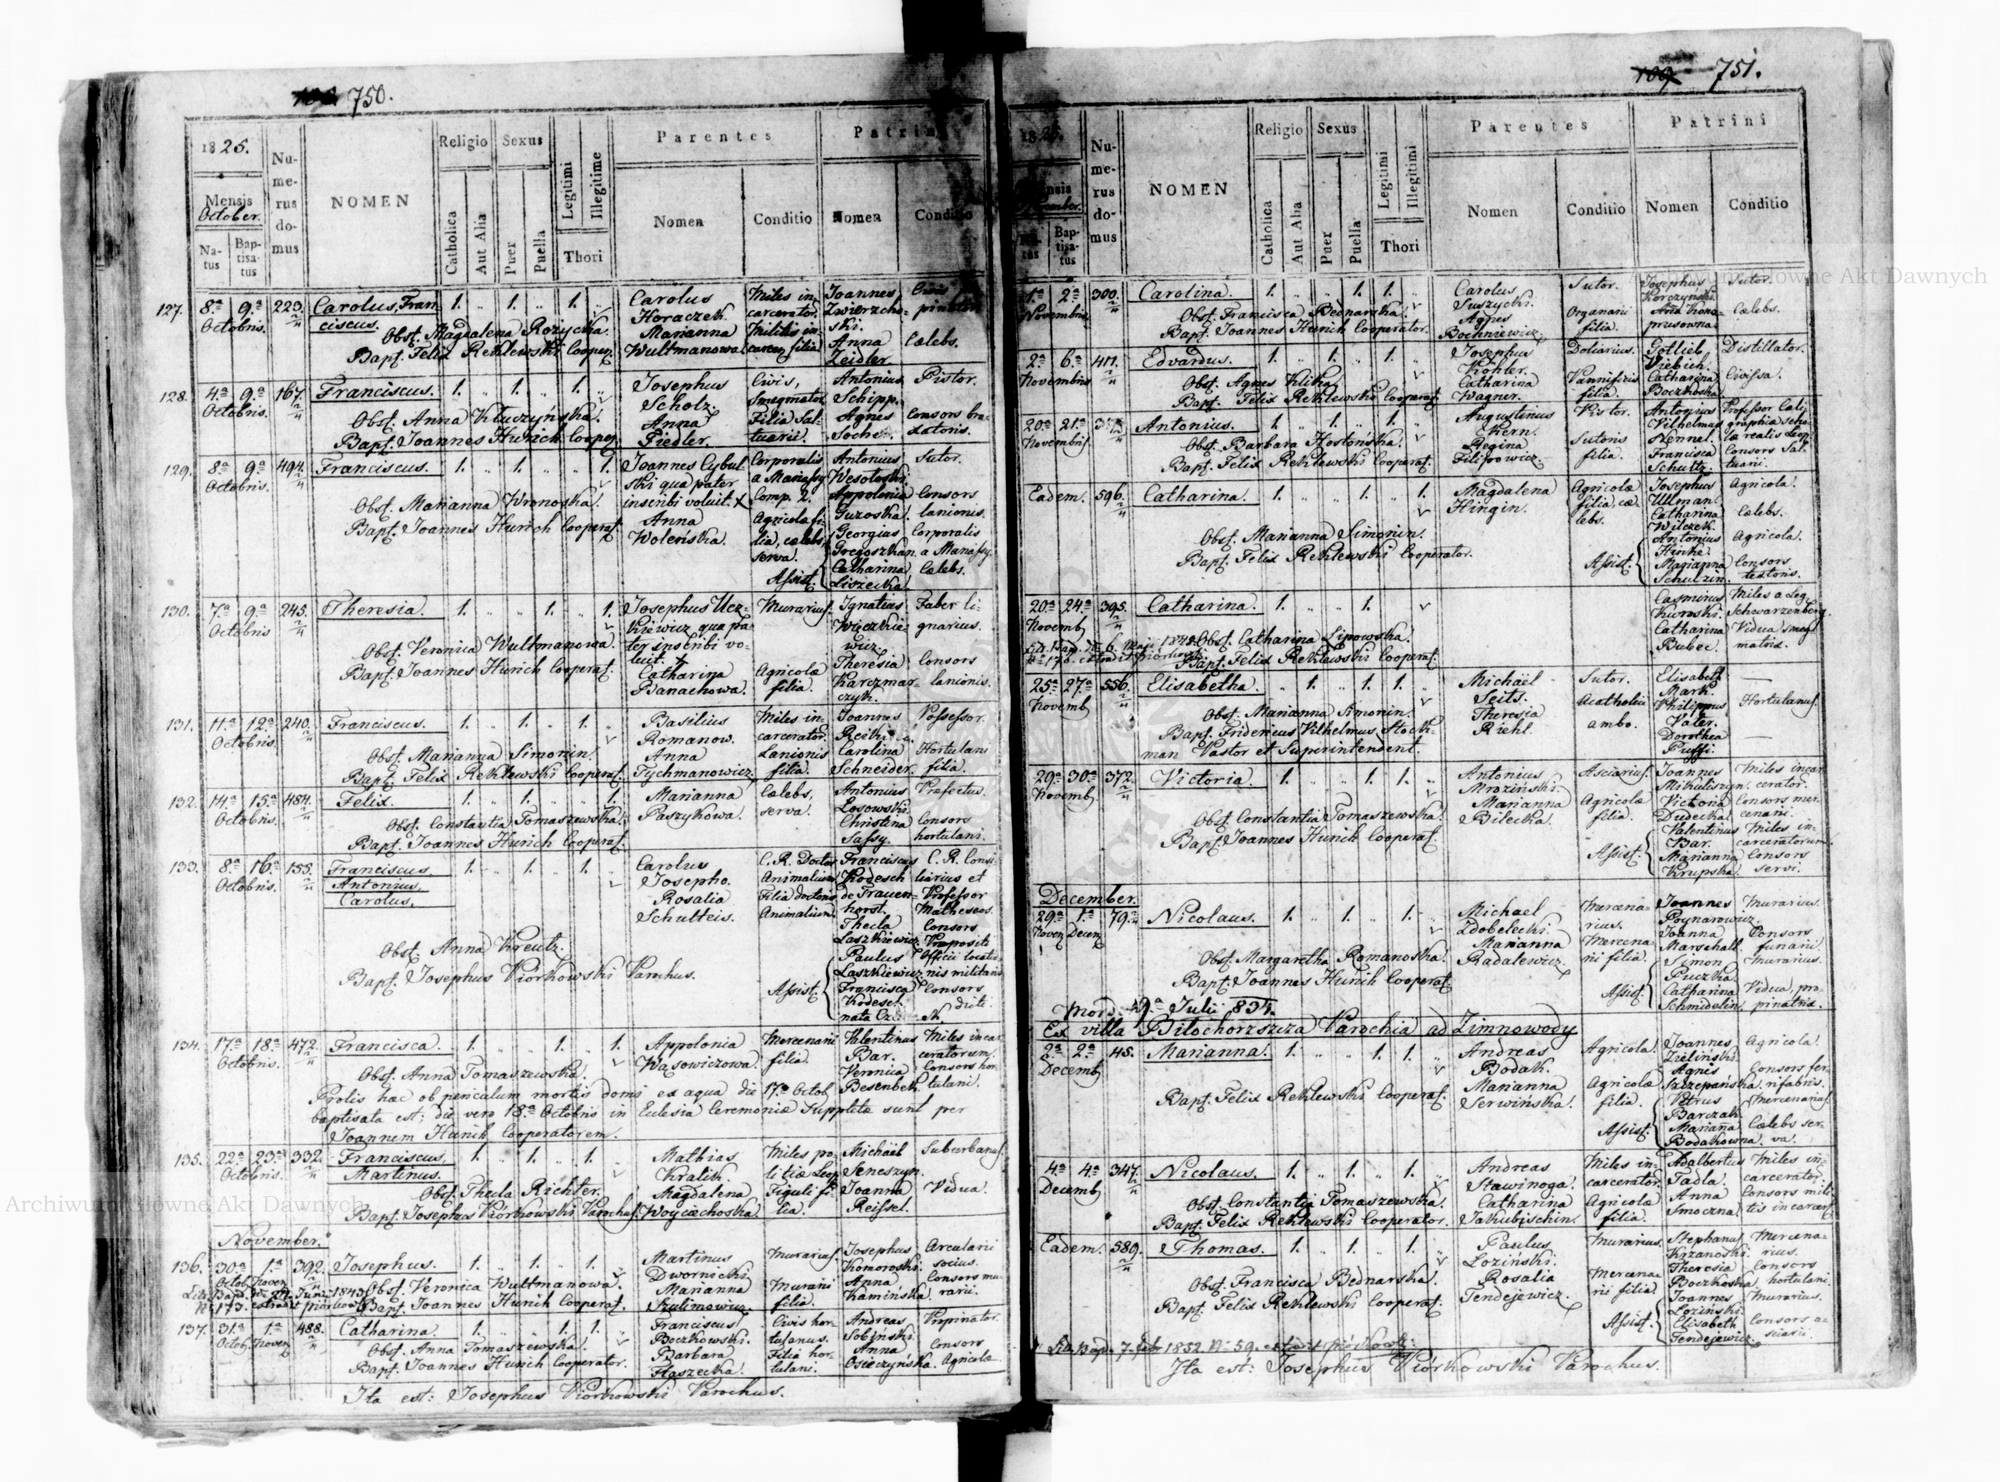 750.
1825.
Mensis October.
Natus
Baptisatus
Numerus domus
NOMEN
Religio
Catholica
Aut Alia
Sexus
Puer
Puella
Legitimi
Illegitime
Thori
Parentes
Nomen
Conditio
Patrini
Nomen
Conditio
127. 8ª 9ª Octobris. 223. Carolus, Franciscus. 1. 1. 1.
Obst. Magdalena Rożycka.
Bapt. Felix Reklewski Cooper.
Carolus Horaczek Miles incarcerator.
Marianna Wultmanowa Militis incarcer. filia
Joannes Zwierzchoski. Civis
Anna Zeidler Cælebs.
128. 4ª 9ª Octobris. 167. Franciscus. 1. 1. 1.
Obst. Anna Kluczyńska.
Bapt. Joannes Hunich Cooper.
Josephus Scholz. Civis, Smegmator
Anna Fiedler. Filia Saltuarii.
Antonius Schipp. Pistor.
Agnes
129. 8ª 9ª Octobris. 494. Franciscus. 1. 1. 1.
Obst. Marianna Wronoska.
Bapt. Joannes Hunich Cooperat.
Joannes Cybulski qua pater inscribi voluit. Corporalis a Manassy Comp. 2.
Anna Woleńska. Agricolæ filia, cælebs, serva.
Antonius Wesołoski. Sutor.
Appolonia Guzoska. Consors lanionis.
Assist. Georgius Gregoszkan Corporalis a Manassy.
Catharina Liszecka Cælebs.
130. 7ª 9ª Octobris 245. Theresia. 1. 1. 1.
Obst. Veronica Wultmanowa
Bapt. Joannes Hunich Cooperat.
Josephus qua pater inscribi voluit Murarius.
Catharina Banachowa. Agricolæ filia.
Ignatius Faber lignarius.
Theresia Karczmarczyk. Consors lanionis.
131. 11ª 12ª Octobris. 240. Franciscus. 1. 1. 1.
Obst. Marianna Simonin.
Bapt. Felix Reklewski Cooperat.
Basilius Romanow. Miles incarcerator.
Anna Tychmanowicz. Lanionis filia.
Joannes Possessor.
Carolina Schneider. Hortulani filia.
132. 14ª 15ª Octobris. 484. Felix. 1. 1. 1.
Obst. Constantia Tomaszewska.
Bapt. Joannes Hunich Cooperat.
Marianna Paszykowa. Cælebs. serva.
Antonius Łosowski Præfectus.
Christina Sassy. Consors hortulani.
133. 8ª 16ª Octobris. 155. Franciscus Antonius. Carolus. 1. 1. 1.
Obst. Anna Kreutz.
Bapt. Josephus Piórkowski Parochus.
Carolus Josepho. C. R. Doctor Animalium
Rosalia Schulteis. Filia doctoris Animalium.
Franciscus Kodesch de Frauenhorst. C. R. Consiliarius et Professor Matheseos.
Thecla Laszkiewicz Consors Præpositi
Assist. Paulus Laszkiewicz
Francisca Kodesch Consors dicti.
134. 17ª 18ª Octobris. 472. Francisca. 1. 1. 1.
Obst. Anna Tomaszewska.
Appolonia Wąsowiczowa. Mercenarii filia.
Valentinus Bar. Miles incarceratorum.
Veronica Besenbek. Consors hortulani.
Prolis hæc ob periculum mortis domi ex aqua die 17ª Octob.
baptisata est; die vero 18ª Octobris in Eclesia Ceremoniæ Suppletæ sunt per
Joannem Hunich Cooperatorem.
135. 22ª 23ª Octobris. 332. Franciscus. Martinus. 1. 1. 1.
Obst. Thecla Richter.
Bapt. Josephus Piórkowski Parochus.
Mathias Kralik. Miles politiæ Leop.
Magdalena Woyciechoska. Figuli filia.
Michaël Seneszyn. Suburbanus.
Joanna Reissel. Vidua.
November.
136. 30ª 1ª Octob. Novem. 392. Josephus. 1. 1. 1.
Obst. Veronica Wultmanowa.
Bapt. Joannes Hunich Cooperat.
Martinus Dwornicki Murarius.
Marianna Szulimowicz. Murarii filia.
Josephus Komoroski. Arcularii socius.
Anna Kamińska. Consors murarii.
137. 31ª 1ª Octob. Novem. 488. Catharina. 1. 1. 1.
Obst. Anna Tomaszewska.
Bapt. Joannes Hunich Cooperator.
Franciscus Boczkowski. Civis hortulanus.
Barbara Haszecka. Filia hortulani.
Andreas Sobiński. Propinator.
Anna Osieczyńska. Consors Agricolæ
Ita est: Josephus Piorkowski Parochus.
751.
Numerus domus
NOMEN
Religio
Catholica
Aut Alia
Sexus
Puer
Puella
Legitimi
Illegitimi
Thori
Parentes
Nomen
Conditio
Patrini
Nomen
Conditio
1ª 2ª Novembris 300. Carolina. 1. 1. 1.
Obst. Francisca Bednarska.
Bapt. Joannes Hunich Cooperator.
Carolus Suszycki. Sutor.
Agnes Bochniewicz. Organarii filia.
Josephus Korczyński. Sutor.
Anna Cælebs.
2ª 6ª Novembris 411. Edvardus. 1. 1. 1.
Obst. Agnes Klitka.
Bapt. Felix Reklewski Cooperat.
Josephus Köhler. Doliarius.
Catharina Wagner. Pannificis filia.
Gotlieb Liebich. Distillator.
Catharina Boczkoska Civissa.
20ª 21ª Novembris Antonius. 1. 1. 1.
Obst. Barbara Hostońska.
Bapt. Felix Reklewski Cooperat.
Augustinus Kern. Pistor.
Regina Filipowicz. Sutoris filia.
Antonius Vilhelmus Hennel. Professor
Francisca Schultz. Consors Saltuarii.
Eadem. 596. Catharina. 1. 1. 1.
Obst. Marianna Simonin.
Bapt. Felix Reklewski Cooperator.
Magdalena Hingin. Agricolæ filia, cælebs.
Josephus Ullman. Agricola.
Catharina Wilczek. Cælebs.
Assist. Antonius Hinke. Agricola.
Marianna Schulzin. Consors textoris.
20ª 24ª Novemb. 395. Catharina. 1. 1.
Obst. Catharina Lipowska.
Bapt. Felix Reklewski Cooperat.
Casimirus Kuroski. Miles a Leg. Schwarzenberg.
Catharina Bubec. Vidua smegmatoris.
25ª 27ª Novemb. 556. Elisabetha. 1. 1. 1.
Obst. Marianna Simonin.
Bapt. Fridericus Vilhelmus Stockman Pastor et Superintendent.
Michaël Seits. Sutor.
Theresia Riehl. Acatholici ambo.
Elisabeth Mark.
Philippus Vater. Hortulanus.
Dorothea
29ª 30ª Novemb. 372. Victoria. 1. 1. 1.
Obst. Constantia Tomaszewska.
Bapt. Joannes Hunich Cooperat.
Antonius Mroziński. Asciarius.
Marianna Bilecka. Agricolæ filia.
Joannes Mikuliszyn. Miles incarcerator.
Victoria Dudecka Consors mercenarii.
Assist. Valentinus Bar. Miles incarceratorum.
Marianna Krupska Consors servi.
December.
29ª 1ª Novem. Decem. 79. Nicolaus. 1. 1. 1.
Obst. Margaretha Romanoska.
Bapt. Joannes Hunich Cooperat.
Michael Zdobelecki. Mercenarius.
Marianna Radalewicz. Mercenarii filia.
Joannes Poynarowicz. Murarius.
Joanna Marschall. Consors funarii
Assist. Simon Puczka murarius.
Catharina Schmidelin. Vidua, propinatrix.
Ex villa Biłochorszcza Parochia ad Zimnowody
2ª 2ª Decemb. 45. Marianna. 1. 1. 1.
Bapt. Felix Reklewski Cooperat.
Andreas Bodak. Agricola.
Marianna Serwińska. Agricolæ filia.
Joannes Zieliński. Agricola.
Agnis Szczepańska. Consors ferrifabris.
Assist. Petrus Barczak. Mercenarius.
Mariana Bodakowna. Cælebs serva.
4ª 4ª Decemb. 347. Nicolaus. 1. 1. 1.
Obst. Constantia Tomaszewska.
Bapt. Felix Reklewski Cooperator.
Andreas Stawinoga. Miles incarcerator.
Catharina Jakubischin. Agricolæ filia.
Adalbertus Tadla. Miles incarcerator.
Anna Smoczna. Consors militis incarcer.
Eadem. 589. Thomas. 1. 1. 1.
Obst. Francisca Bednarska.
Bapt. Felix Reklewski Cooperat.
Paulus Loziński. Murarius.
Rosalia Tendejewicz. Mercenarii filia.
Stephanus Krzanoski Mercenarius.
Theresia Boczkoska Consors hortulani.
Assist. Joannes Loziński. Murarius.
Elisabeth Tendejewicz. Consors asciarii.
Ita est: Josephus Piórkowski Parochus.
Archiwum Główne Akt Dawnych
Archiwum Główne Akt Dawnych